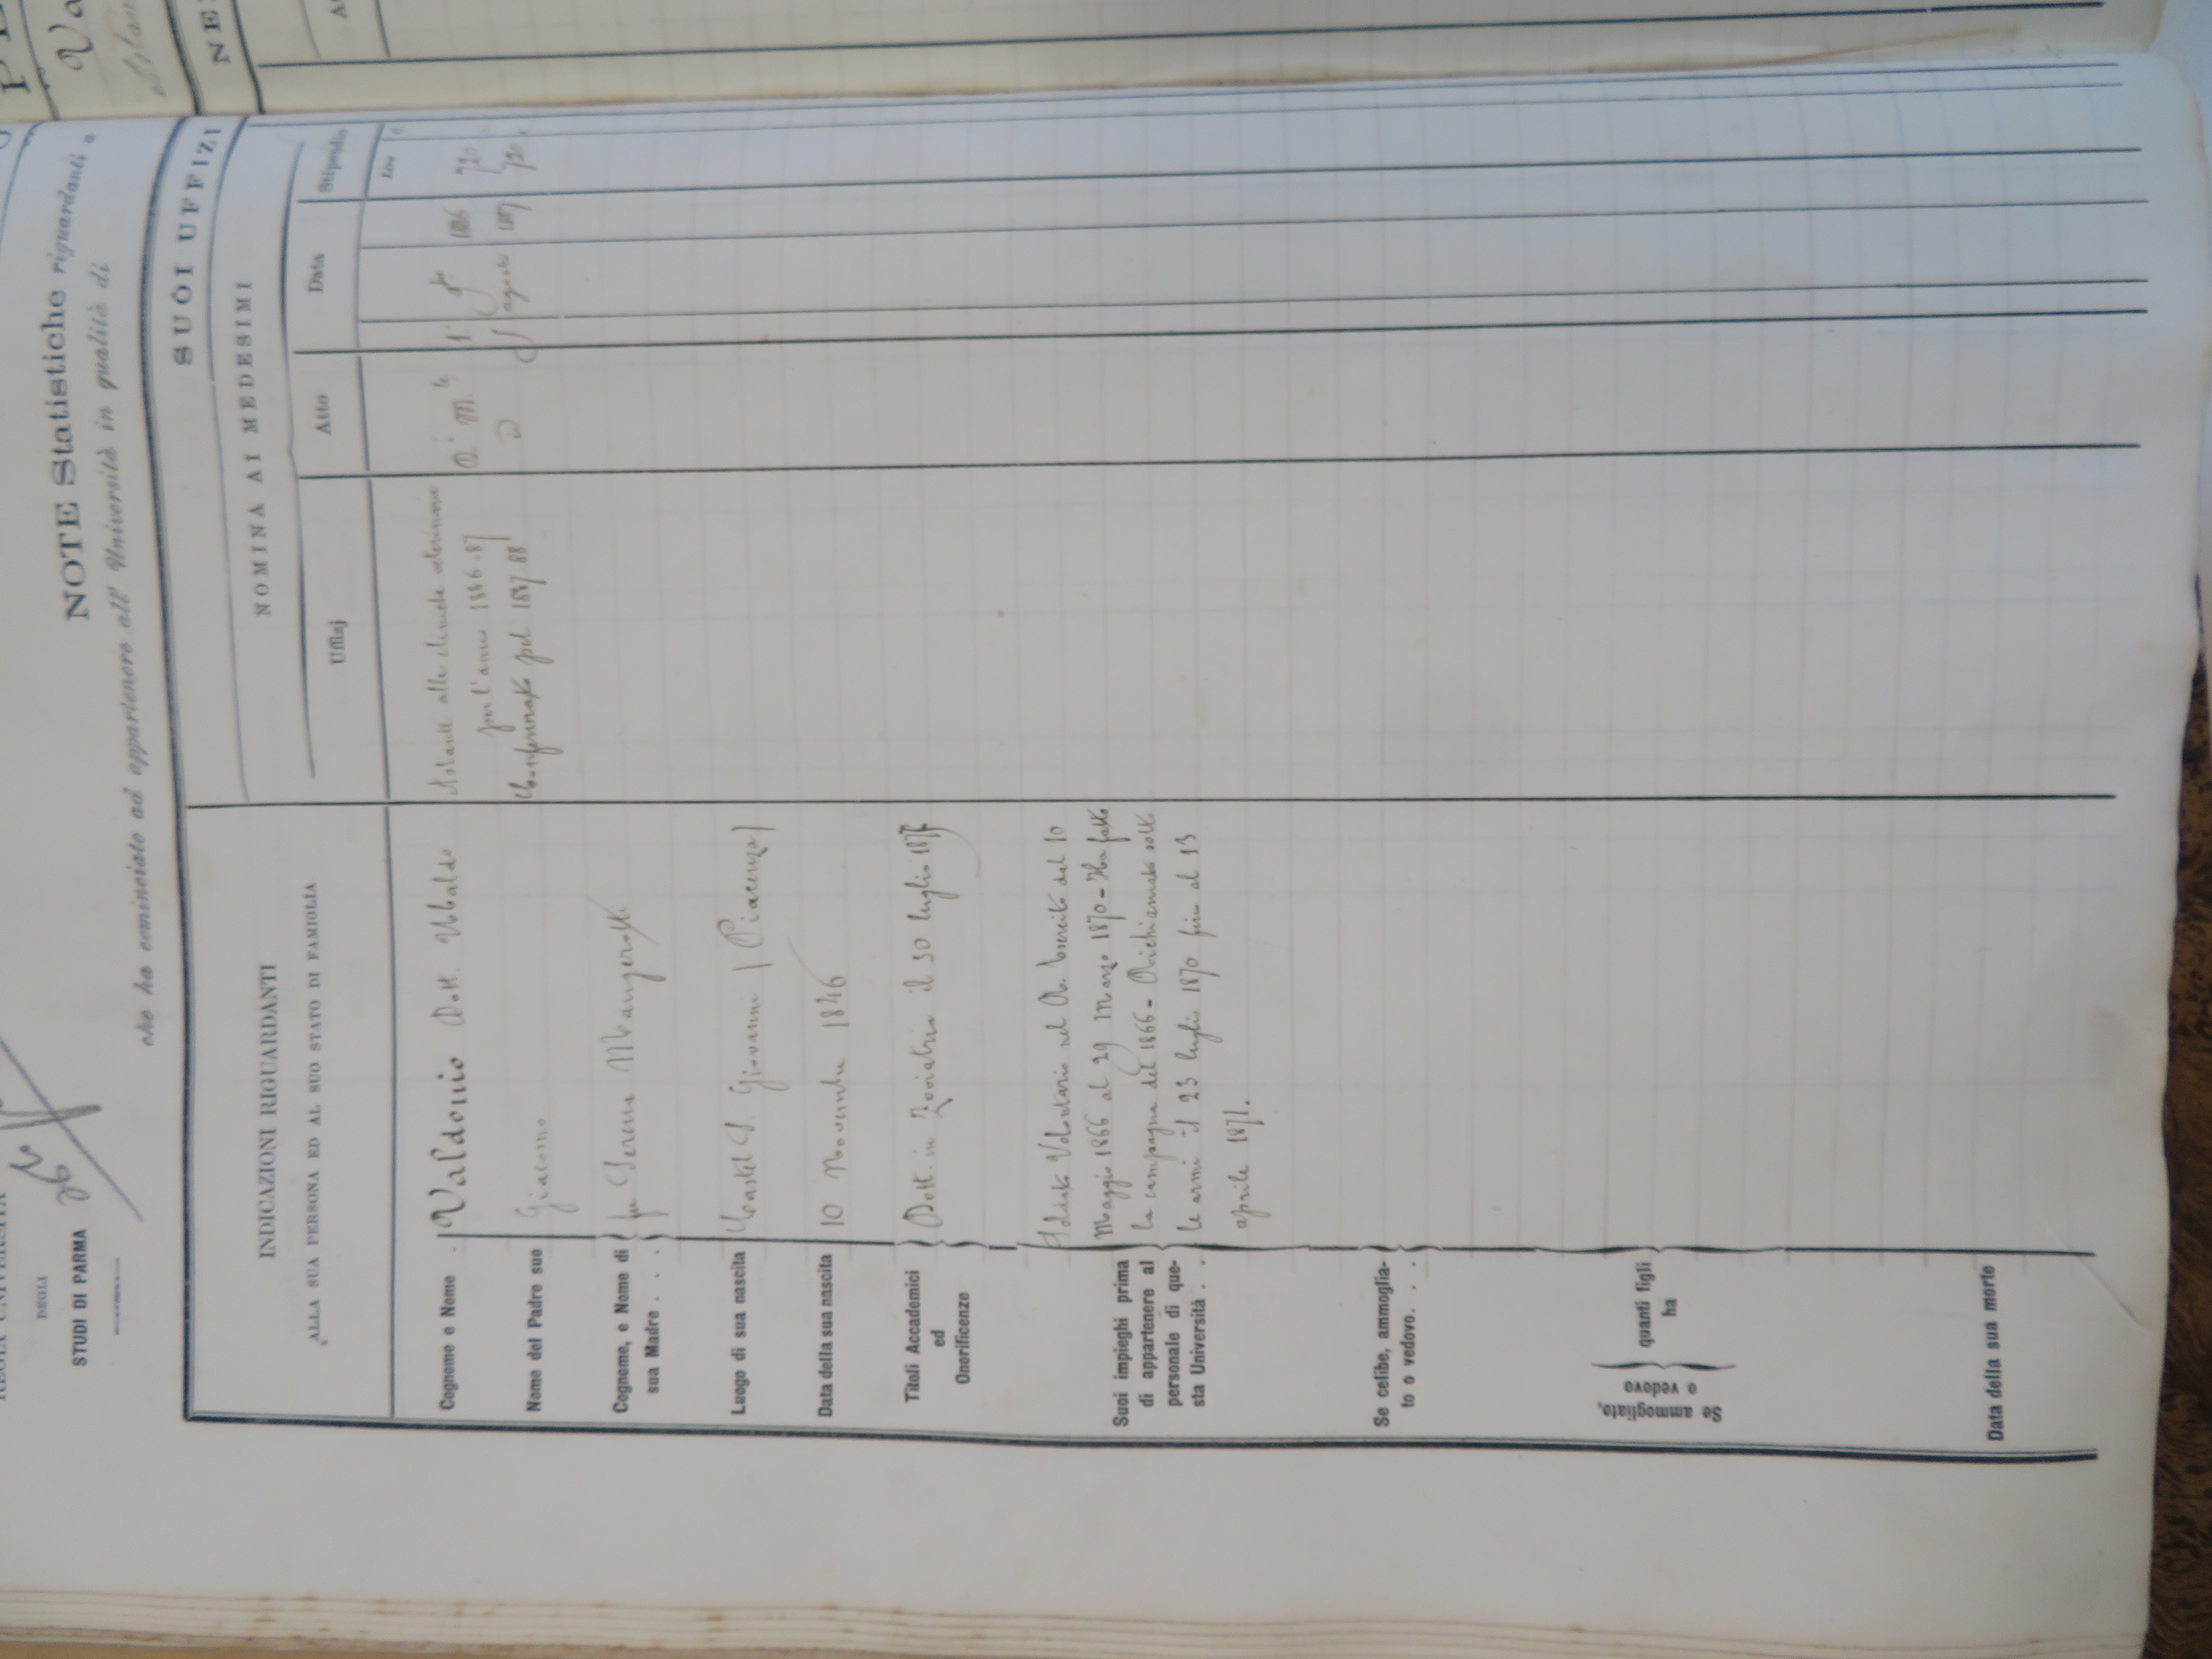 DEGLI
STUDI DI PARMA
NOTE Statistiche riguardanti
che ha cominciato ad appartenere all' Università in qualità di
INDICAZIONI RIGUARDANTI
ALLA SUA PERSONA ED AL SUO STATO DI FAMIGLIA
SUOI UFFIZI
NOMINA AI MEDESIMI
Uffizj Atto Data Stipendio
Lire
Cognome e Nome . Valdonio Dott. Ubaldo
Nome del Padre suo Giacomo
Cognome, e Nome di
sua Madre . . . fu Serena
Luogo di sua nascita Castel S. Giovanni (Piacenza)
Data della sua nascita 10 Novembre 1846
Titoli Accademici
ed
Onorificenze
Dott. in Zooiatria il 30 luglio
Suoi impieghi prima
di appartenere al
personale di que-
sta Università . .
Soldato Volontario nel R. Esercito dal 10
Maggio 1866 al 29 Marzo 1870 - Ha fatto
la campagna del 1866 - Richiamato sotto
le armi il 23 luglio 1870 fino al 13
aprile 1871.
Se celibe, ammoglia-
to o vedovo. . .
Se ammogliato,
o vedovo
quanti figli
ha
Data della sua morte
alle cliniche veterinarie
per l'anno 1886-87 D. M. 1° 1886 720
Confermato pel 1887-88 agosto 1887 720